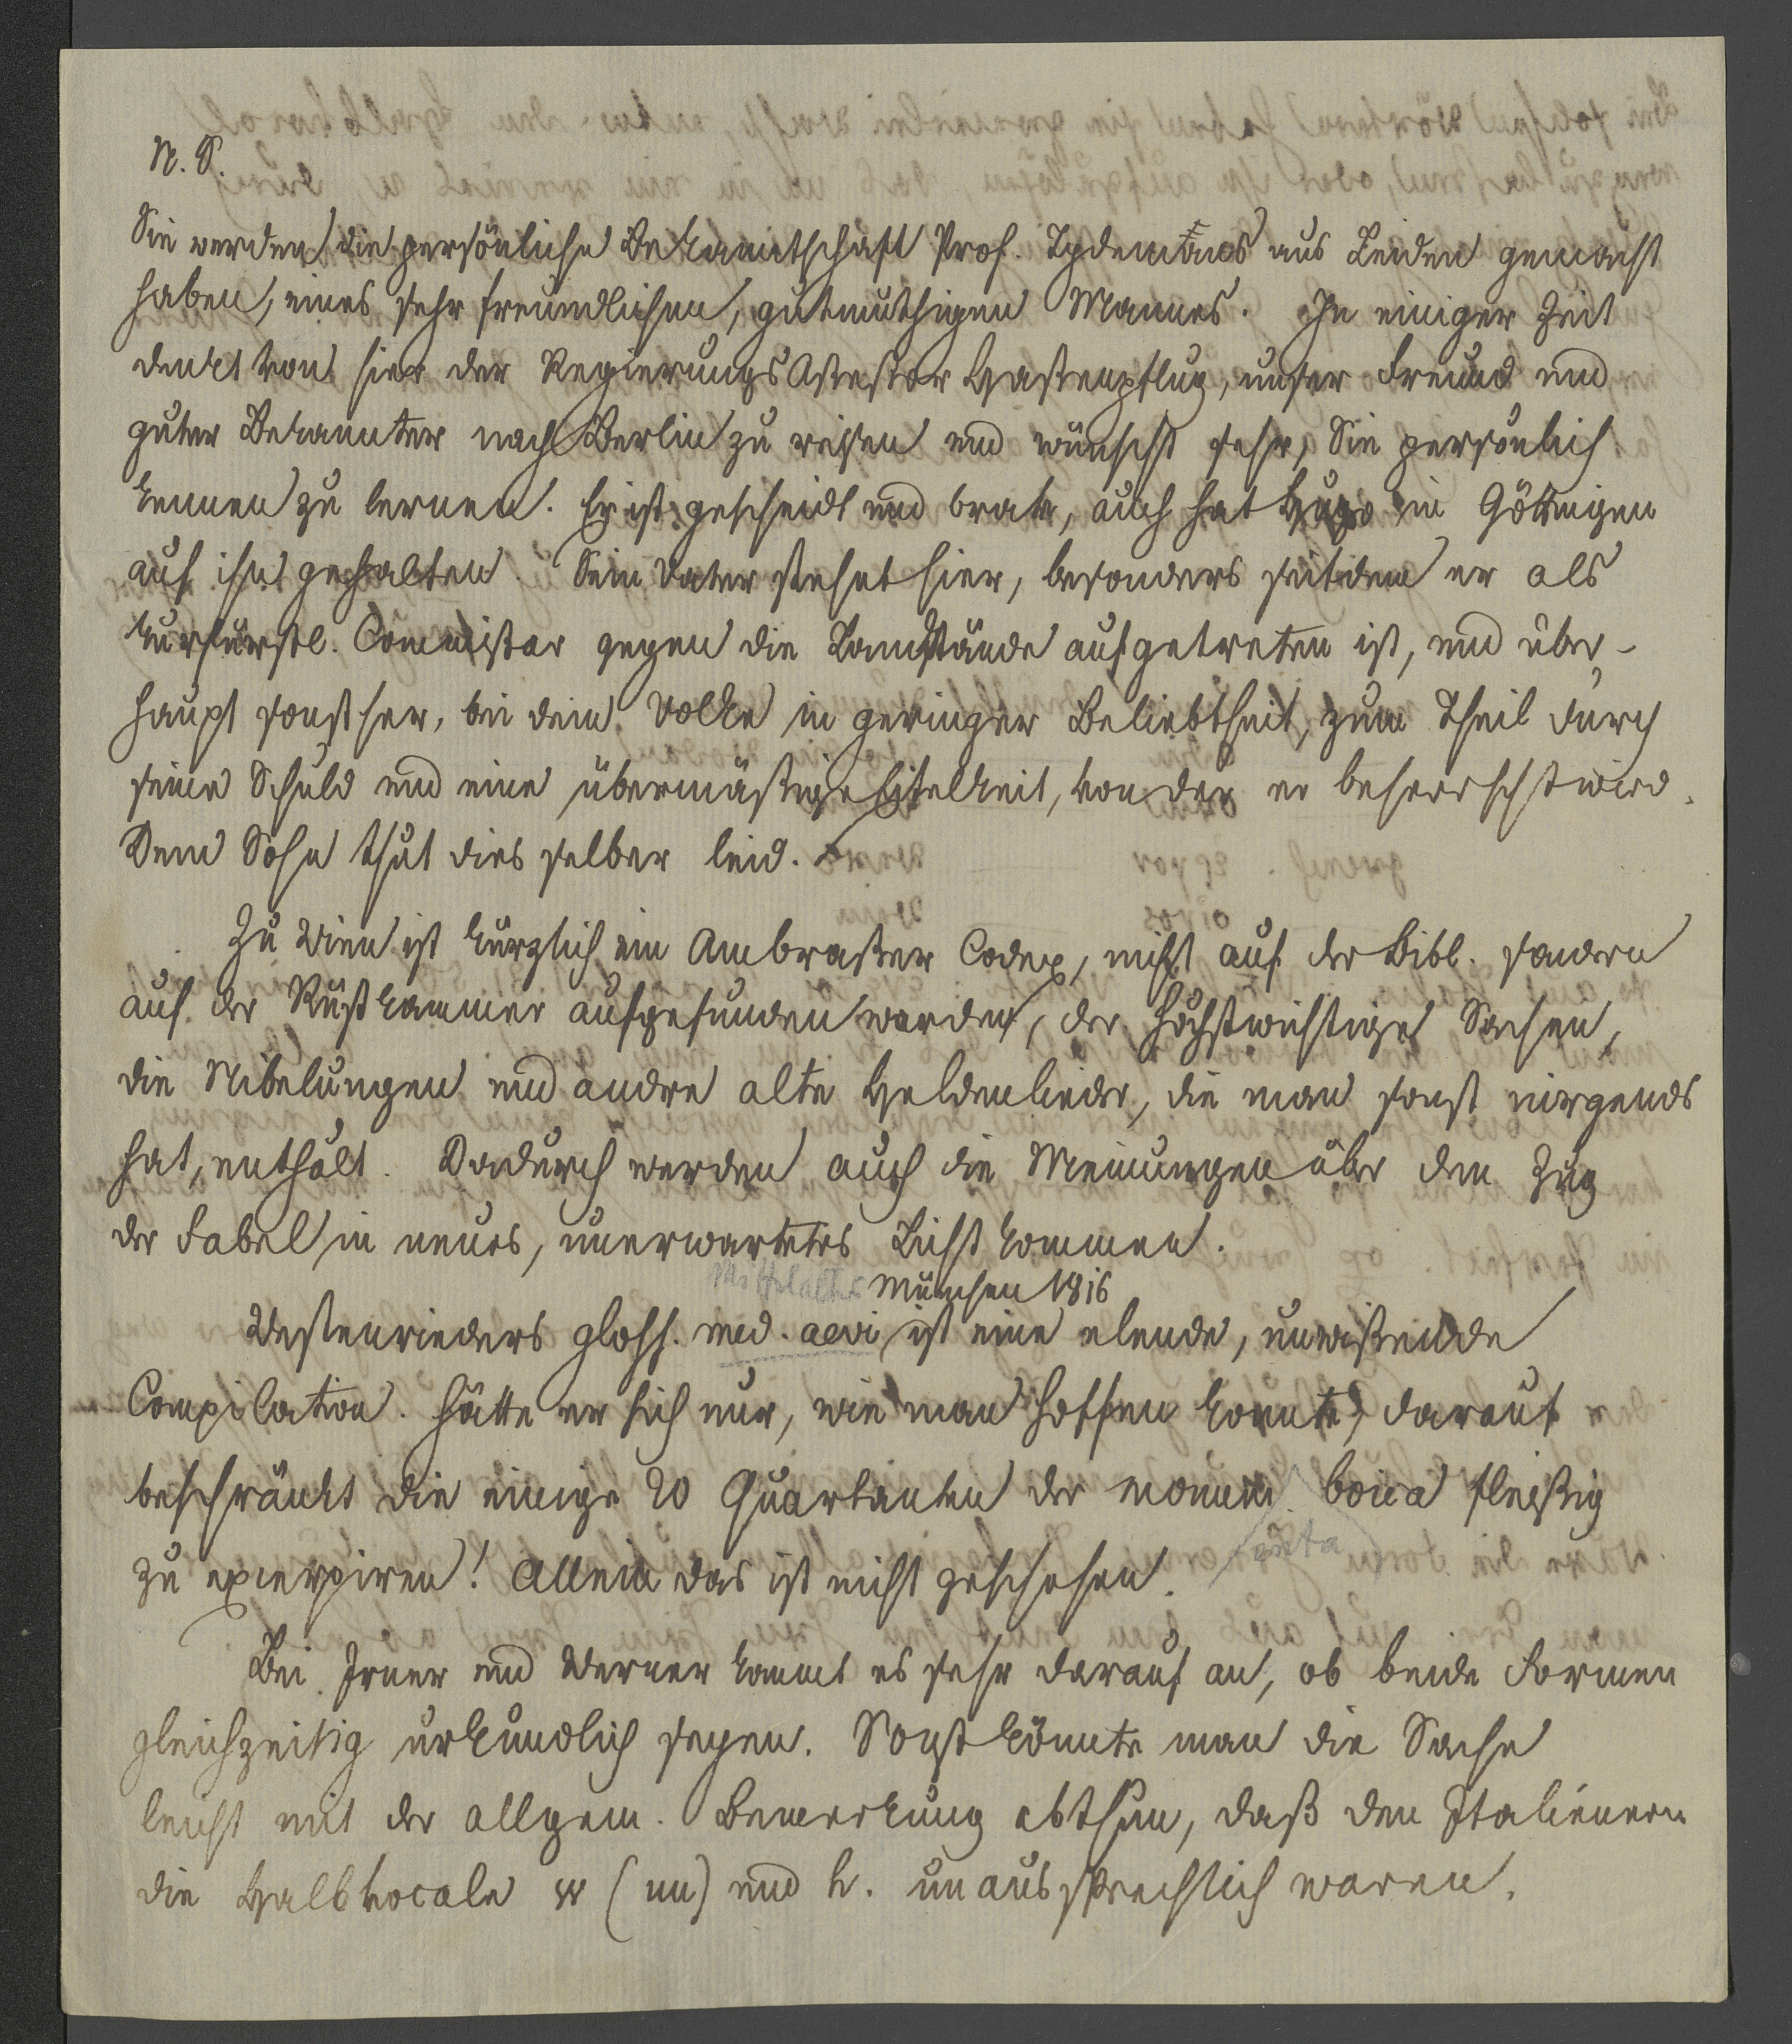 N. S.
Sie werden die persönliche Bekanntschaft Prof. Tydemans aus Leiden gemacht
haben, eines sehr freundlichen, gutmuthigen Mannes. In einiger Zeit
denkt von hier der Regierungs Assessor Hassenpflug, unser Freund und
guter Bekannter nach Berlin zu reisen und wünscht sehr, Sie persönlich
kennen zu lernen. Er ist gescheidt und brav, auch hat Hugo in Göttingen
auf ihn gehalten. Sein Vater stehet hier, besonders seitdem er als
kurfürstl. Commissar gegen die Landstände aufgetreten ist, und über-
haupt sonst her, bei dem Volke in geringer Beliebtheit, zum Theil durch
seine Schuld und eine übermäßige Eitelkeit, von der er beherrscht wird.
Dem Sohn thut dies selber leid.
Zu Wien ist kürzlich ein Ambraßer Codex, nicht auf der Bibl. sondern
auf der Rüstkammer aufgefunden worden, der höchstwichtige Sachen,
die Nibelungen und andre alte Heldenlieder, die man sonst nirgends
hat, enthält. Dadurch werden auch die Meinungen über den Zug
der Fabel in neues, unerwartetes Licht kommen.
Mittelalter München 1816
Westenrieders gloss. med. aevi ist eine elende, unwißende
Compilation. Hätte er sich nur, wie man hoffen konnte, darauf
beschränkt die einige 20 Quartanten der monum. boica fleißig
zu excerpiren! Allein das ist nicht geschehen.
Bei Irner und Werner kommt es sehr darauf an, ob beide Formen
gleichzeitig urkundlich seyen. Sonst könnte man die Sache
leicht mit der allgem. Bemerkung abthun, daß den Italienern
die Halbvocale w (uu) und h. unaussprechlich waren.